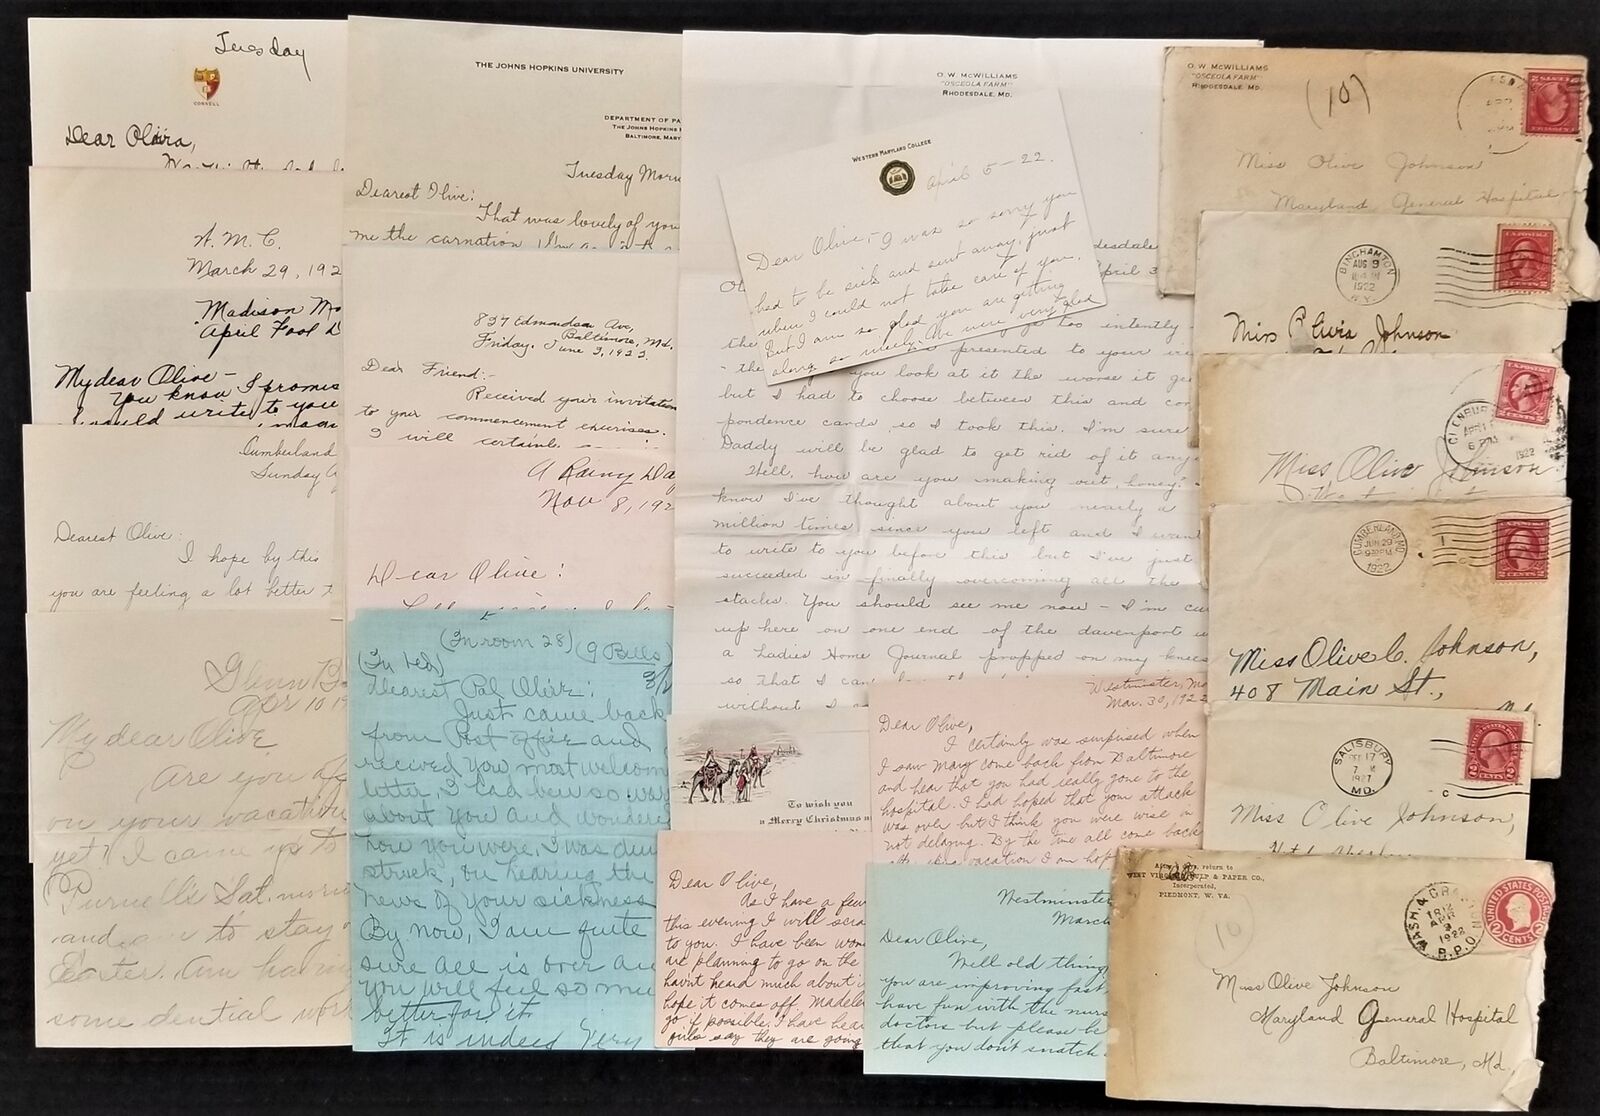 Tuesday
CORNELL
Dear Olivia,
W. M. C.
March 29, 192
Madison
April Fool D
My dear Olive —
You know I promis
would write to you
Cumberland
Sunday
Dearest Olive:
I hope by this
you are feeling a lot better
Glenn B
Apr 10 19
My dear Olive
Are you
on your vacation
yet? I came up to
Purnell's Sat. morn
and am to stay
Easter. Am having
some dental work
THE JOHNS HOPKINS UNIVERSITY
DEPARTMENT OF PA
THE JOHNS HOPKINS
BALTIMORE, MARY
Tuesday Morn
Dearest Olive:
That was lovely of you
me the carnation
837 Edmondson Ave,
Baltimore, Md.
Friday, June 3, 1923.
Dear Friend:-
Received your invitation
to your commencement exercises.
I will certainl
A Rainy Da
Nov 8, 192
Dear Olive:
(In room 28) (9 Bells)
(In bed)
Dearest Pal Olive:
Just came back
from Post Office and
received you most welcom
letter, I had been so
about you and wondere
how you were, I was
struck, on hearing the
news of your sickness
By now, I am quite
sure all is over an
you will feel so mu
better for it
It is indeed very
O. W. MCWILLIAMS
"OSCEOLA FARM"
RHODESDALE, MD.
WESTERN MARYLAND COLLEGE
April 5-22.
Dear Olive,- I was so sorry you
had to be sick and sent away, just
when I could not take care of you.
But I am so glad you are getting
along so nicely. We were very glad
desdale
April 3
the
too intently
presented to your
you look at it the worse it
but I had to choose between this and
pondence cards, so I took this. I'm sure
Daddy will be glad to get rid of it any
Well, how are you making out, honey?
know I've thought about you nearly a
million times since you left and I want
to write to you before this but I've just
succeeded in finally overcoming all the
stacles. You should see me now — I'm cu
up here on one end of the davenport
a Ladies Home Journal propped on my knees
so that I can
without
To wish you
a Merry Christmas
Westminster, Md
Mar. 30, 1922
Dear Olive,
I certainly was surprised when
I saw Mary come back from Baltimore
and hear that you had really gone to the
hospital. I had hoped that your attack
was over but I think you were wise in
not delaying. By the time all come back
vacation I am hop
Dear Olive,
As I have a few
this evening I will scra
to you. I have been won
are planning to go on the
havn't heard much about
hope it comes off. Madele
go if possible. I have hear
girls say they are going
Westminster
March
Dear Olive,
Well old thing
you are improving fast
have fun with the nurs
doctors but please be
that you don't snatch
O. W. MCWILLIAMS
"OSCEOLA FARM"
RHODESDALE, MD.
(10)
Miss Olive Johnson
Maryland General Hospital
BINGHAMTON
AUG 9
1922
N.Y.
Miss Olivia Johnson
APR 11
6 PM
1922
Miss Olive Johnson
CUMBERLAND, MD.
JUN 29
9 30 PM
1922
Miss Olive C. Johnson,
408 Main St.,
SALISBURY
17
7 M
1927
MD.
Miss Olive Johnson,
After days, return to
WEST VIRGINIA PULP & PAPER CO.,
Incorporated,
PIEDMONT, W. VA.
10
WASH. & GRAFTON
TR 12
APR
3
1922
R.P.O.
UNITED STATES POSTAGE
2 CENTS 2
Miss Olive Johnson
Maryland General Hospital
Baltimore, Md.,